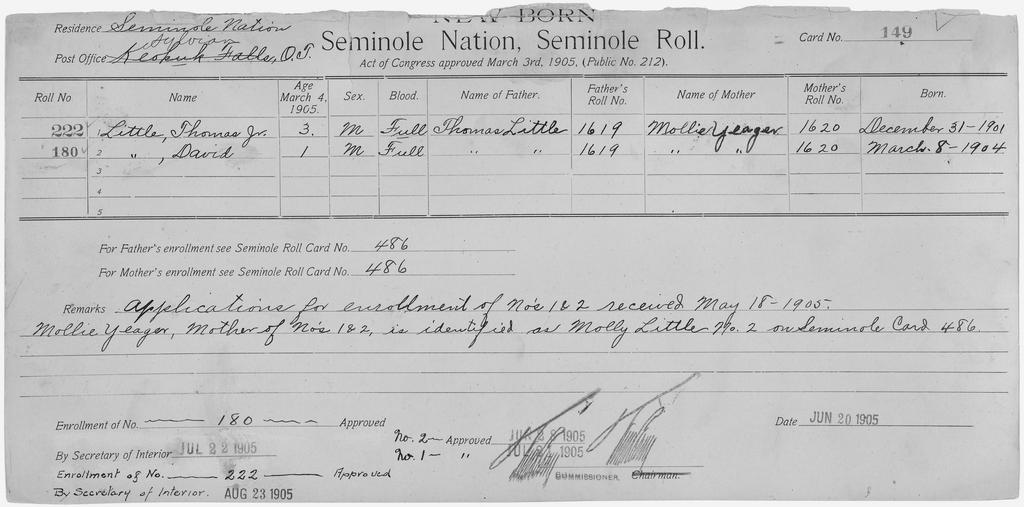 NEW BORN
Residence Seminole Nation
Seminole Nation, Seminole Roll.
Card No. 149
Sylvian
Post Office Keokuk Falls, O.T.
Act of Congress approved March 3rd, 1905, (Public No. 212).
Roll No Name Age March 4, 1905. Sex. Blood. Name of Father. Father's Roll No. Name of Mother Mother's Roll No. Born.
222 1 Little, Thomas Jr. 3. M Full Thomas Little 1619 Mollie Yeager 1620 December 31-1901
180 2 " , David 1 M Full " " 1619 " " 1620 March. 8-1904
3
4
5
For Father's enrollment see Seminole Roll Card No. 486
For Mother's enrollment see Seminole Roll Card No. 486
Remarks Applications for enrollment of No's 1&2 received May 18-1905.
Mollie Yeager, Mother of No's 1&2, is identified as Molly Little No. 2 on Seminole Card 486.
Enrollment of No. 180 Approved
Date JUN 20 1905
No. 2 - Approved 1905
By Secretary of Interior JUL 22 1905
No. 1 - " 1905
Enrollment of No. 222 Approved
COMMISSIONER Chairman.
By Secretary of Interior. AUG 23 1905